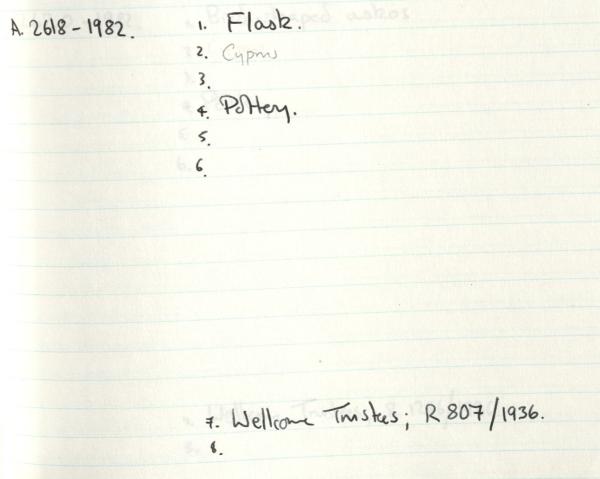 A. 2618-1982. 1. Flask.
2. Cyprus
3.
4. Pottery.
5.
6.
7. Wellcome Trustees; R 807/1936.
8.